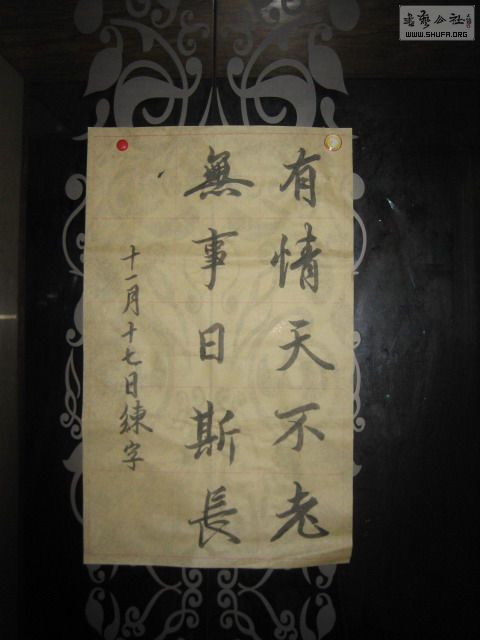 有情天不老
無事日斯長
十一月十七日練字
書藝公社
WWW.SHUFA.ORG